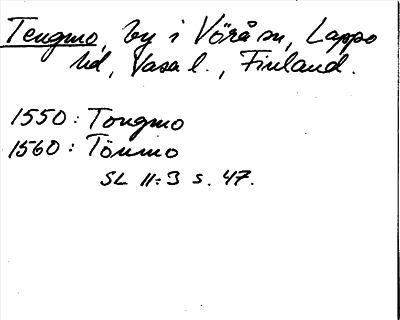 Tengmo, by i Vörå sn, Lappo
hd, Vasa l., Finland.
1550: Tongmo
1560: Tönmo
SL 11:3 s. 47.